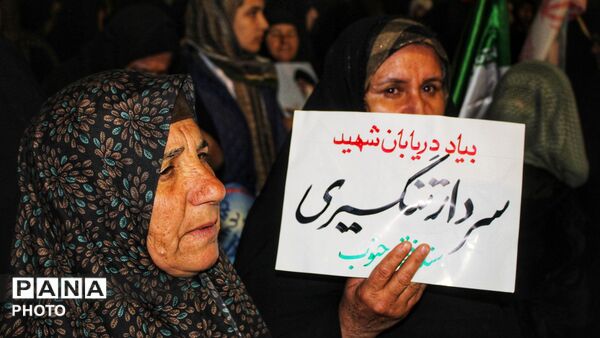 بیاد دریابان شهید
سردار تنگسیری
جنوب
PANA
PHOTO